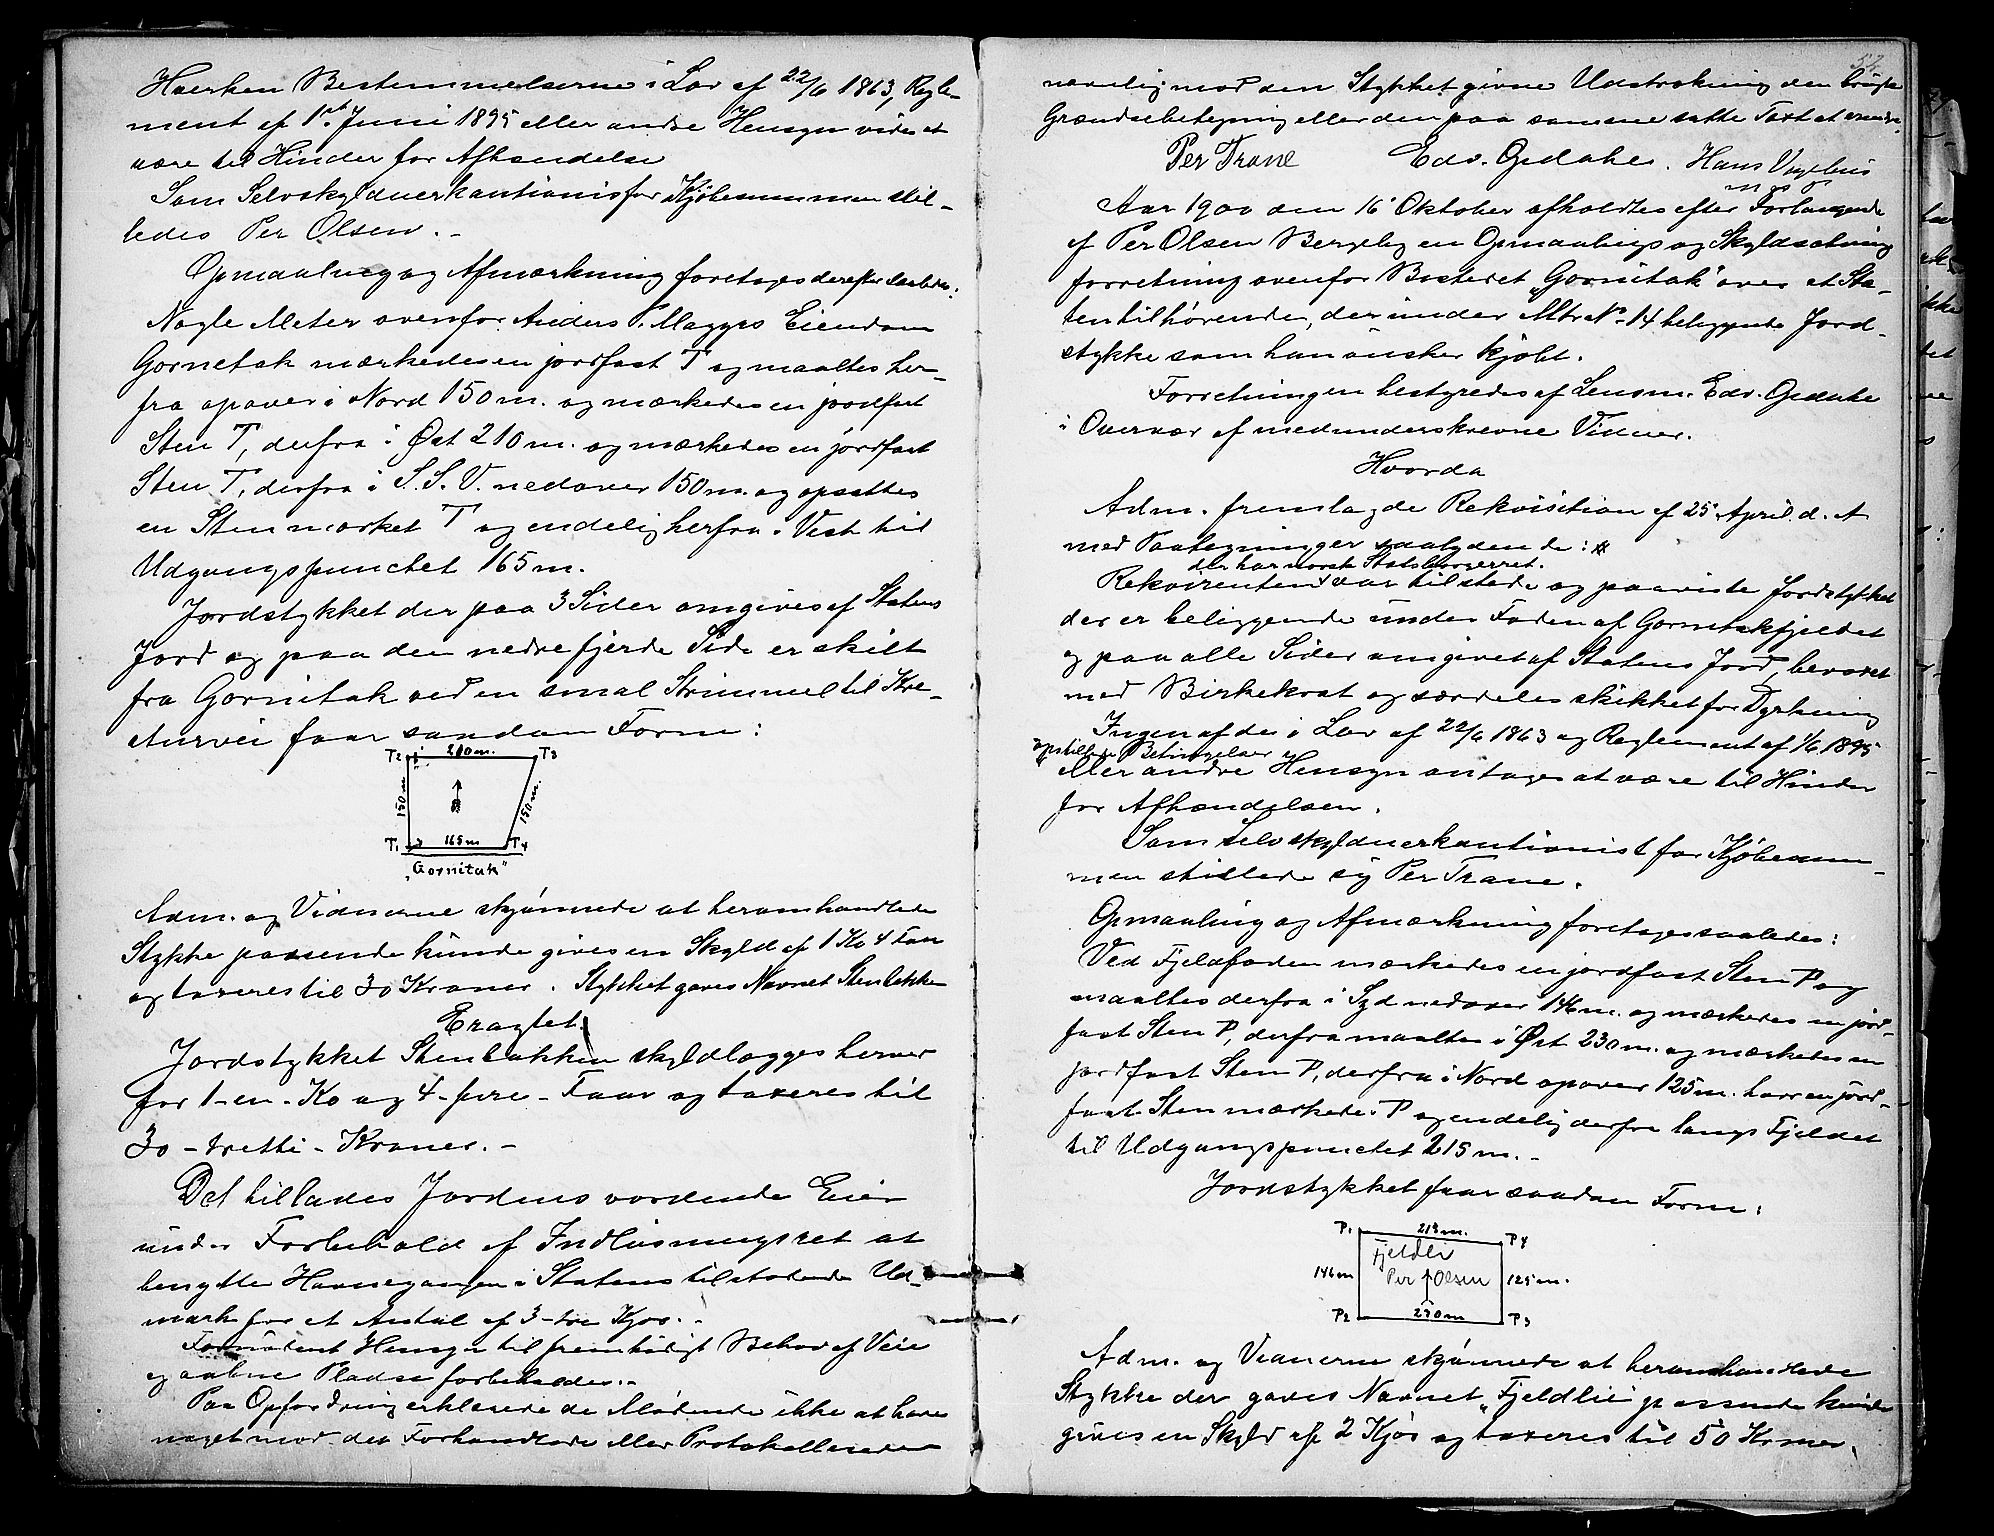 Hverken Bestemmelserne i Lov af 22/6 1863, Regle-
ment af 1st Juni 1895 eller andre Hensyn vides at
være til Hinder for Afhændelse
Som Selvskyldnerkautionist for Kjøbesummen stil-
ledes Per Olsen. -
Opmaaling og Afmærkning foretoges derefter saaledes:
Nogle Meter ovenfor Anders P. Magges Eiendom
Gornetak mærkedes en jordfast T og maaltes her-
fra opover i Nord 150 m. og mærkedes en jordfast
Sten T, derfra i Øst 210 m. og mærkedes en jordfast
Sten T, derfra i S.S.V. nedover 150 m. og opsattes
en Sten mærket T og endelig herfra i Vest til
Udgangspunctet 165 m.
Jordstykket der paa 3 Sider omgives af Statens
Jord og paa den nedre fjerde Side er skilt
fra Gornitak ved en smal Strimmel til Kre-
aturvei faar saadan Form:
T2 210 m. T3
150 m
150 m.
T1 165 m T4
"Gornitak"
Adm. og Vidnerne skjønnede at heromhandlede
Stykke passende kunde gives en Skyld af 1 Ko 4 Faar
og taxeres til 30 Kroner. Stykket gaves Navnet Stenbakken
Eragtet
Jordstykket Stenbakken skyldlægges herver
for 1 - en - Ko og 4 - fire - Faar og taxeres til
30 - tretti - Kroner. -
Det tillades Jordens vordende Eier
under Forbehold af Indløsningsret at
benytte Havnegangen i Statens tilstødende Ud-
mark for et Antal af 3 - tre Kjør. -
Fornødent Hensyn til fremtidigt Behov af Veie
og aabne Pladse forbeholdes. -
Paa Opfordring erklærede de Mødende ikke at have
noget mod det Forhandlede eller Protokollerede
52.
navnlig mod den Stykket givne Udstrækning den brugte
Grændsebetegning eller den paa samme satte Taxt at erindre.
Per Trane Edv. Gedahe. Hans
m p P
Aar 1900 den 16 Oktober afholdtes efter Forlangende
af Per Olsen Bergeby en Opmaalings og Skyldsætnings
forretning ovenfor Bostedet "Gornitak" over et Sta-
ten tilhørende, der under Mtr No. 14 beliggende Jord-
stykke som han ønsker kjøbt.
Forretningen bestyredes af Lensm. Edv. Gedahe
i Overvær af medunderskrevne Vidner.
Hvorda
Adm. fremlagde Rekvisition af 25 April d. A
med Paategninger saalydende:
der har norsk Statsborgerret.
Rekvirenten var tilstede og paaviste Jordstykket
der er beliggende under Foden af Gornitakfjeldet
og paa alle Sider omgivet af Statens Jord, bevoxet
med Birkekrat og særdeles skikket for Dyrkning
Ingen af de i Lov af 22/6 1863 og Reglement af 1/6 1895
opstillede Betingelser
eller andre Hensyn antages at være til Hinder
for Afhændelsen.
Som Selvskyldnerkautionist for Kjøbesum-
men stillede sig Per Trane.
Opmaaling og Afmærkning foretoges saaledes:
Ved Fjeldfoden mærkedes en jordfast Sten P og
maaltes derfra i Syd nedover 146 m. og mærkedes en jord-
fast Sten P, derfra maaltes i Øst 230 m. og mærkedes en
jordfast Sten P, derfra i Nord opover 125 m. hvor en jord-
fast Sten mærkedes P og endelig derfra langs Fjeldet
til Udgangspunctet 215 m. -
Jordstykket faar saadan Form:
P1 215 m. P4
Fjeldli
146 m Per Olsen 125 m.
P2 230 m P3
Adm. og Vidnerne skjønnede at heromhandlede
Stykke der gaves Navnet "Fjeldlie" passende kunde
gives en Skyld af 2 Kjør og taxeres til 50 Kroner.